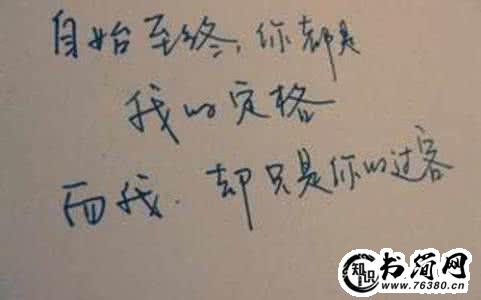 自始至终，你都是
我的定格
而我．却只是你的过客
知识
书简网
www.76380.cn